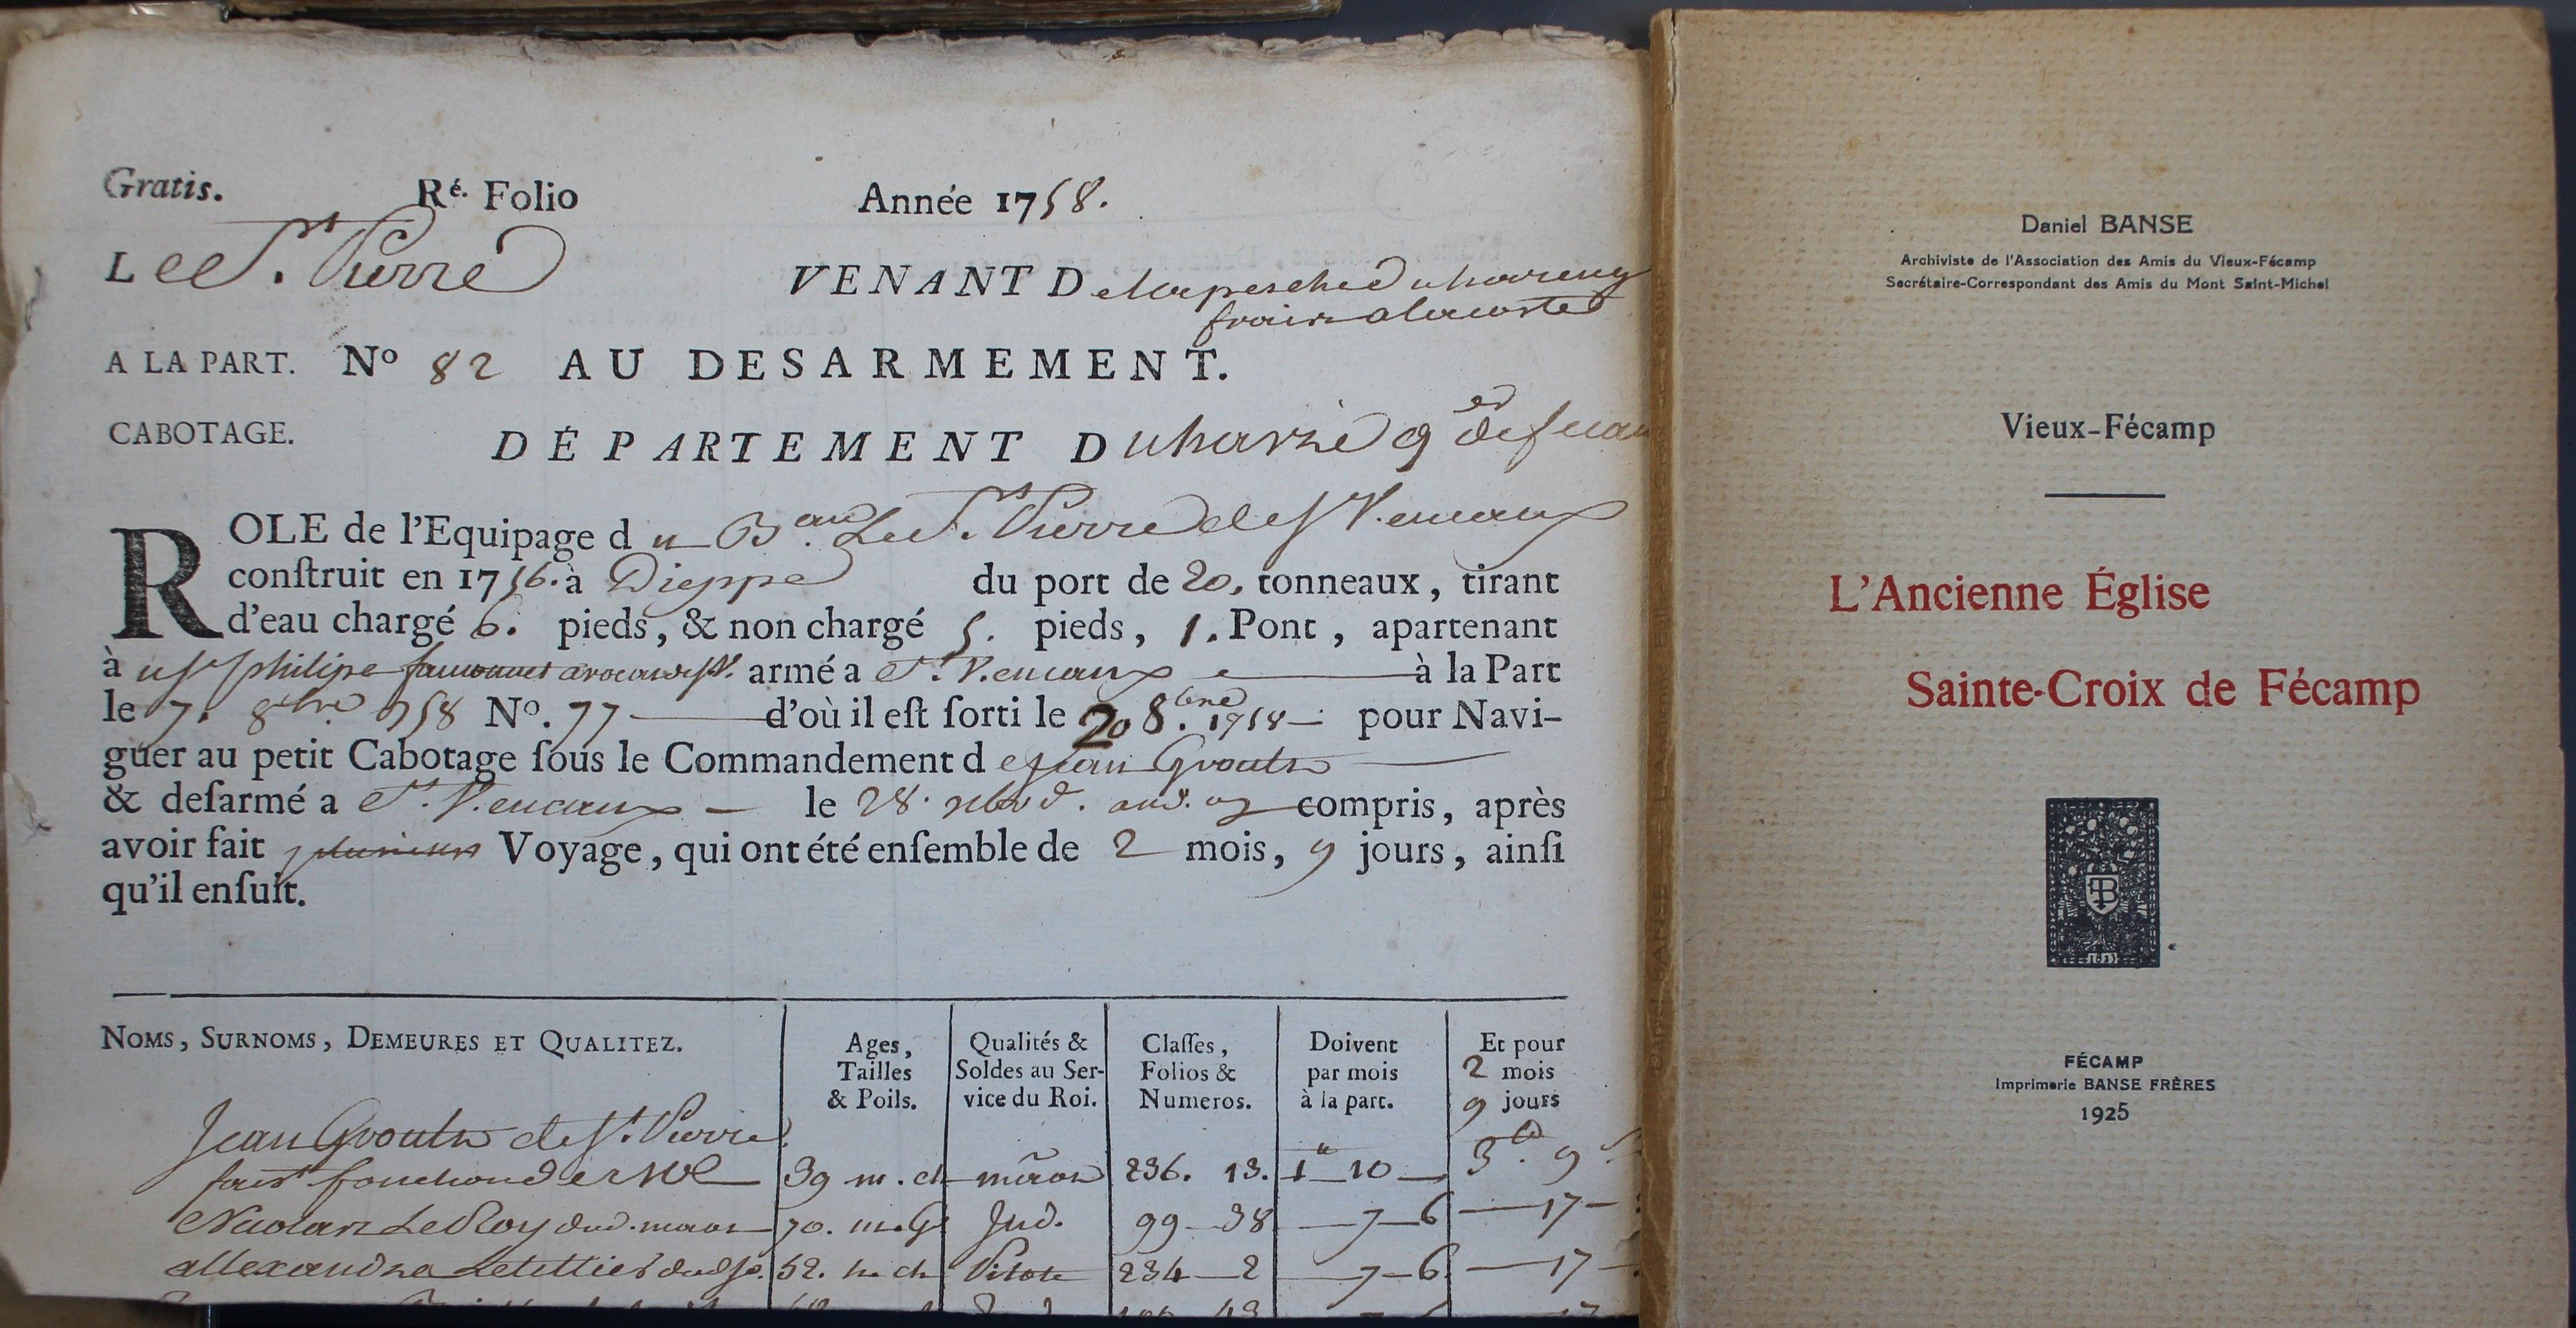 Gratis. Ré. Folio Année 1758.
Le St. Pierre VENANT De la pesche du hareng
frais a la coste
A LA PART. No 82 AU DESARMEMENT.
CABOTAGE.
DÉPARTEMENT Du havre qer de fecam
ROLE de l'Equipage d un Bau. Le St. Pierre de St V. en caux
conſtruit en 1756. à Dieppe du port de 20, tonneaux, tirant
d'eau chargé 6. pieds, & non chargé 5. pieds, 1. Pont, apartenant
à philipe armé a St. V. en caux à la Part
le 7. 8bre 1758 No. 77 d'où il eſt ſorti le 20 8bre. 1758 pour Navi-
guer au petit Cabotage ſous le Commandement d e Jean Groutn
& deſarmé a St. V. en caux le 28. compris, après
avoir fait plusieurs Voyage, qui ont été enſemble de 2 mois, 9 jours, ainſi
qu'il enſuit.
NOMS, SURNOMS, DEMEURES ET QUALITEZ. Ages, Tailles & Poils. Qualités & Soldes au Ser-vice du Roi. Claſſes, Folios & Numeros. Doivent par mois à la part. Et pour 2 mois 9 jours
Jean Groutn de St. Pierre
39 m. ch 236. 13. 1 10 3 9
Nicolas Le Roy dud. 70. m. G Jud. 99 38 7 6 17
allexandre Letellier dud 52. h. ch Pilote 234 2 7 6 17
Daniel BANSE
Archiviste de l'Association des Amis du Vieux-Fécamp
Secrétaire-Correspondant des Amis du Mont Saint-Michel
Vieux-Fécamp
L'Ancienne Église
Sainte-Croix de Fécamp
FÉCAMP
Imprimerie BANSE FRÈRES
1925